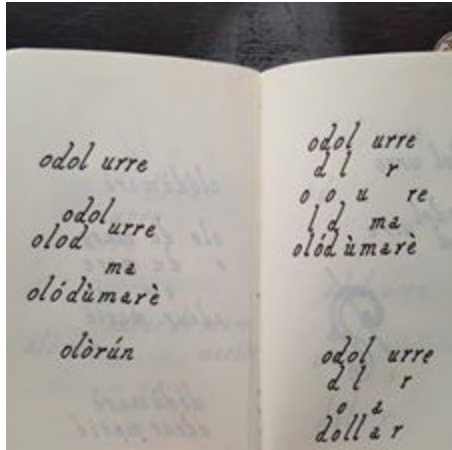 odol urre
odol
urre
olod
ma
olódùmarè
olòrún
odol urre
d l r
o o u re
l d ma
olódùmarè
odol urre
d l r
o a
dollar